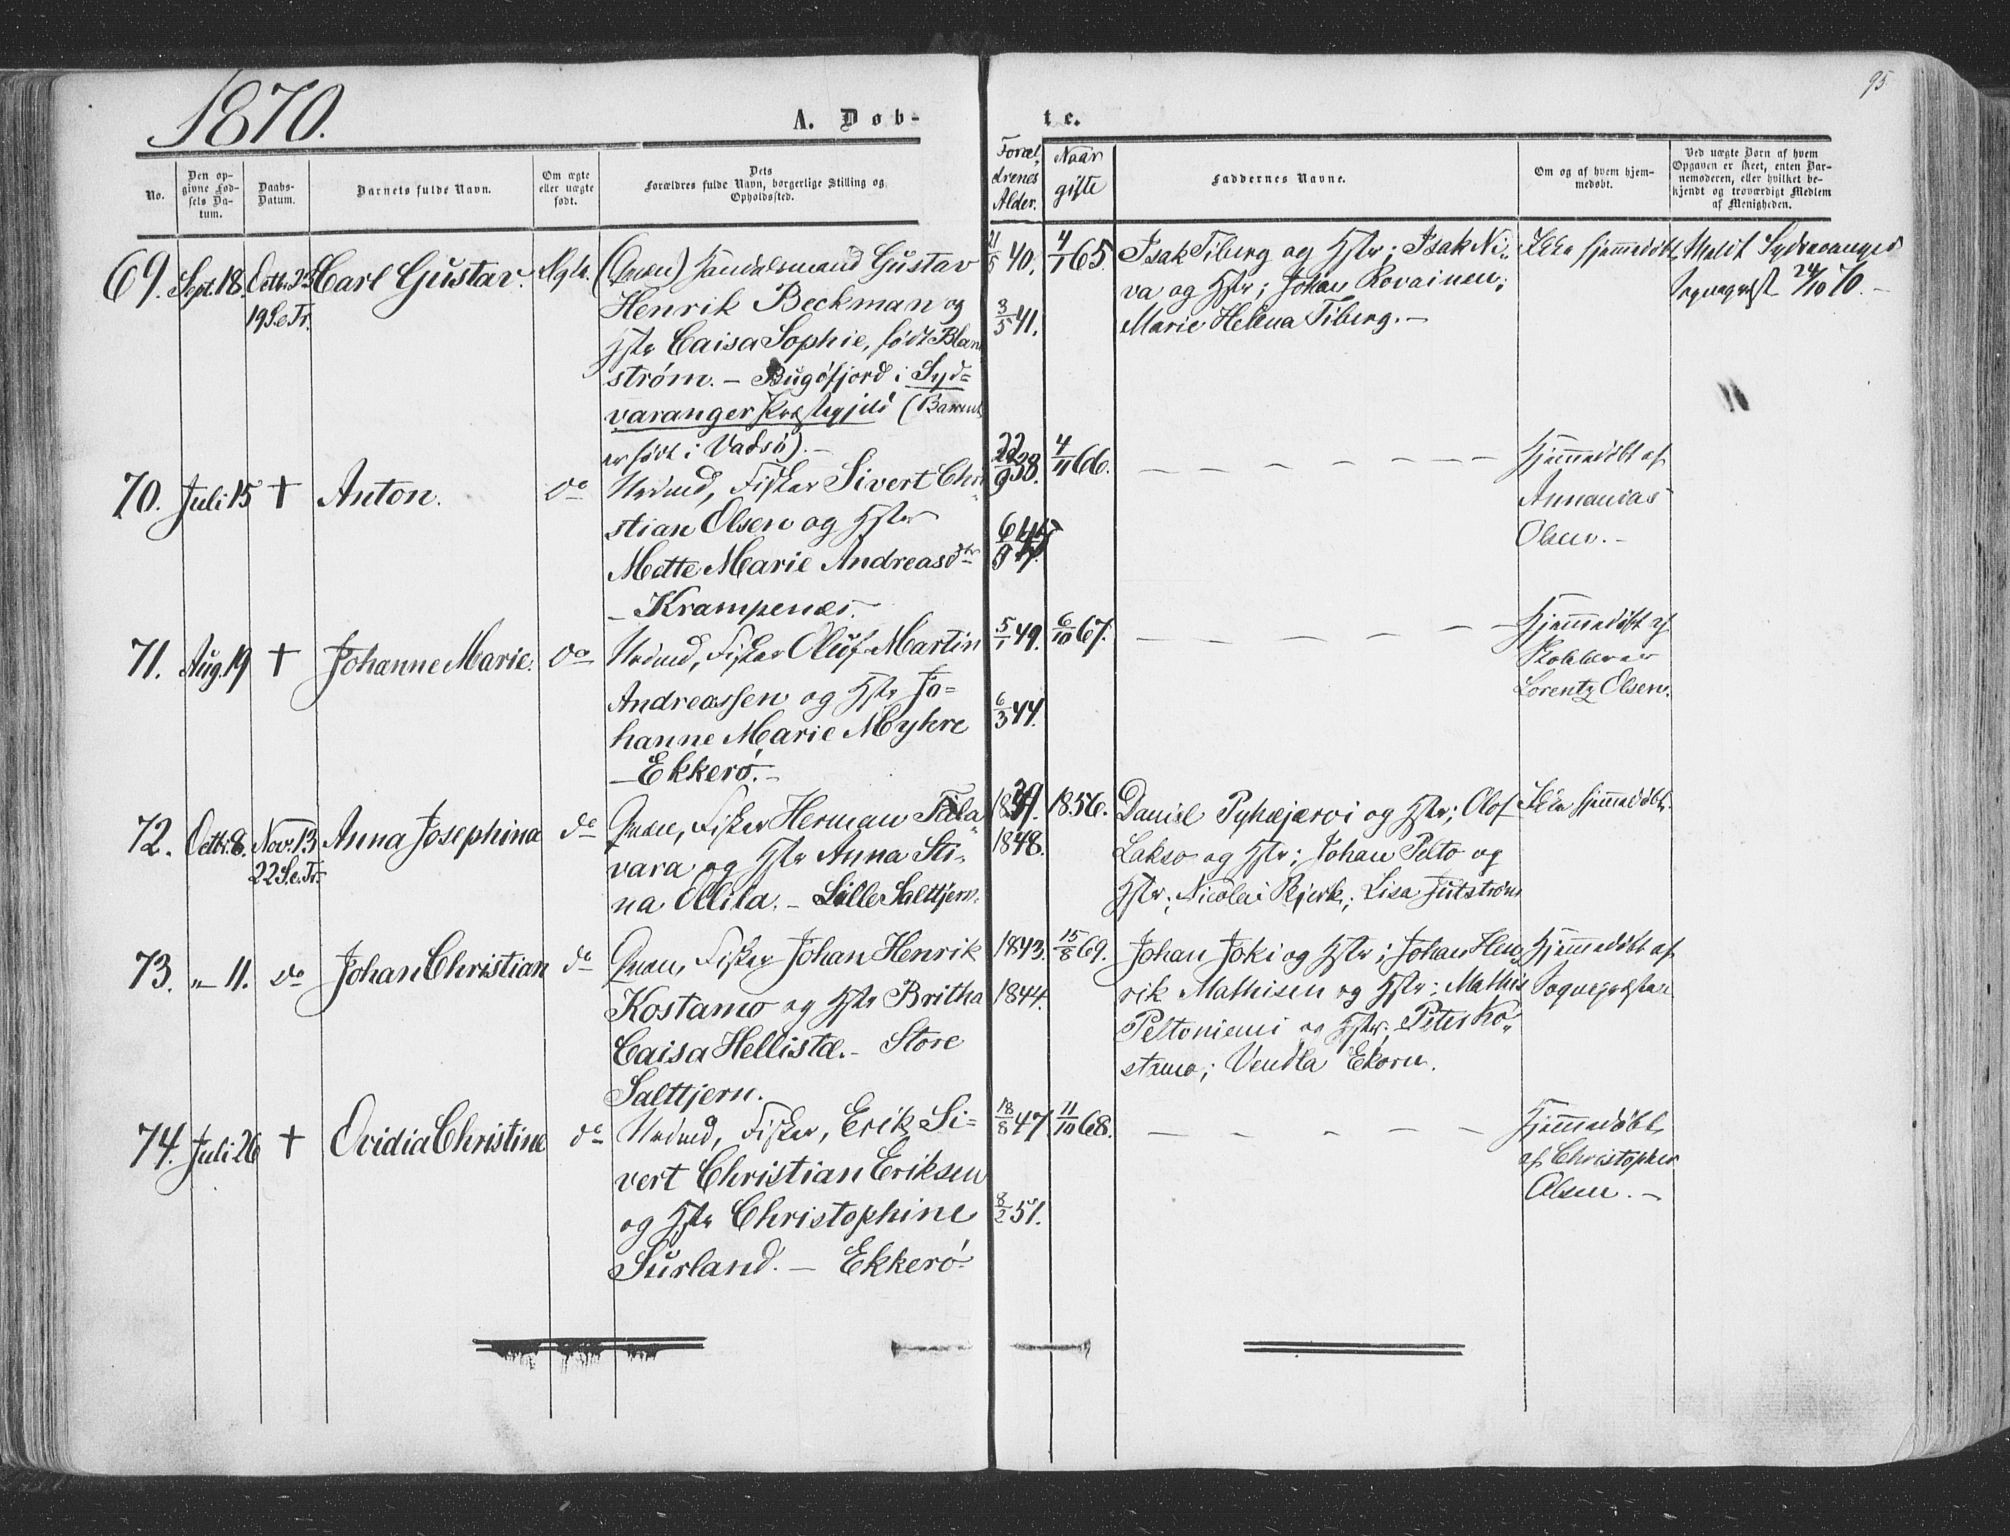 1870.
95
A. Døb-
te.
No.
Den op-
givne Fød-
sels Da-
tum.
Daabs-
Datum.
Barnets fulde Navn.
Om ægte
eller uægte
født.
Dets
Forældres fulde Navn, borgerlige Stilling og
Opholdssted.
Foræl-
drenes
Alder.
Naar
gifte
Faddernes Navne.
Om og af hvem hjem-
medøbt.
Ved uægte Børn af hvem
Opgaven er skeet, enten Bar-
nemoderen, eller hvilket be-
kjendt og troværdigt Medlem
af Menigheden.
69. Sept. 18. Octb. 23 Carl Gustav. Ægte.
19 S.e.Tr.
(Qvæn) Handelsmand Gustav
Henrik Beckman og
Hstr Caisa Sophie, født Blan
strøm. – Bugøfjord i Syd=
varanger Præstegjeld (Barnet
er født i Vadsø). –
21/5 40.
3/5 41.
4/1 65.
Isak Tiberg og Hstr; Isak Ni-
va og Hstr; Johan Rovainen;
Marie Helena Tiberg. –
Ikke hjemmedøbt
Meldt Sydvaranger
Sognepræst 24/10 70. –
70. Juli 15 † Anton. do
Nrdmd, Fisker Sivert Chri
stian Olsen og Hstr
Mette Marie Andreasdtr
– Krampenæs. –
22/9 38.
6/9
4/11 66.
– – – – – –
Hjemmedøbt af
Annanias
Olsen. –
71. Aug. 19 † Johanne Marie. do
Nrdmd, Fisker Oluf Martin
Andreassen og Hstr Jo=
hanne Marie Myhre
– Ekkerø. –
5/1 49.
6/3 44.
6/10 67.
– – – – – –
Hjemmedøbt af
Lorentz Olsen.
72. Octbr. 8. Nov. 13 Anna Josephina do
22 S.e.Tr.
Qvæn, Fisker Herman Tula
vara og Hstr Anna Sti-
na Ollila. – Lille Salttjern.
1848.
1856.
Daniel Pyhæjærvi og Hstr; Olof
Lakso og Hstr; Johan Pelto og
Hstr; Nicolai Bjerk; Lisa Jutstrøm
Ikke hjemmedøbt.
73. „ 11. do Johan Christian do
Qvæn, Fisker Johan Henrik
Kostamo og Hstr Britha
Caisa Hellista. – Store
Salttjern.
1843.
1844.
15/8 69.
Johan Joki og Hstr; Johan Hen-
rik Mathisen og Hstr; Mathis
Peltoniemi og Hstr; Peter Ko-
stamo; Vendla Ekorn.
Hjemmedøbt af
Sognepræsten
74. Juli 26 † Ovidia Christine do
Nrdmd, Fisker, Erik Si-
vert Christian Eriksen
og Hstr Christophine
Surland. – Ekkerø
18/8 47.
8/2 51.
11/10 68.
– – – – – –
Hjemmedøbt
af Christopher
Olsen. –